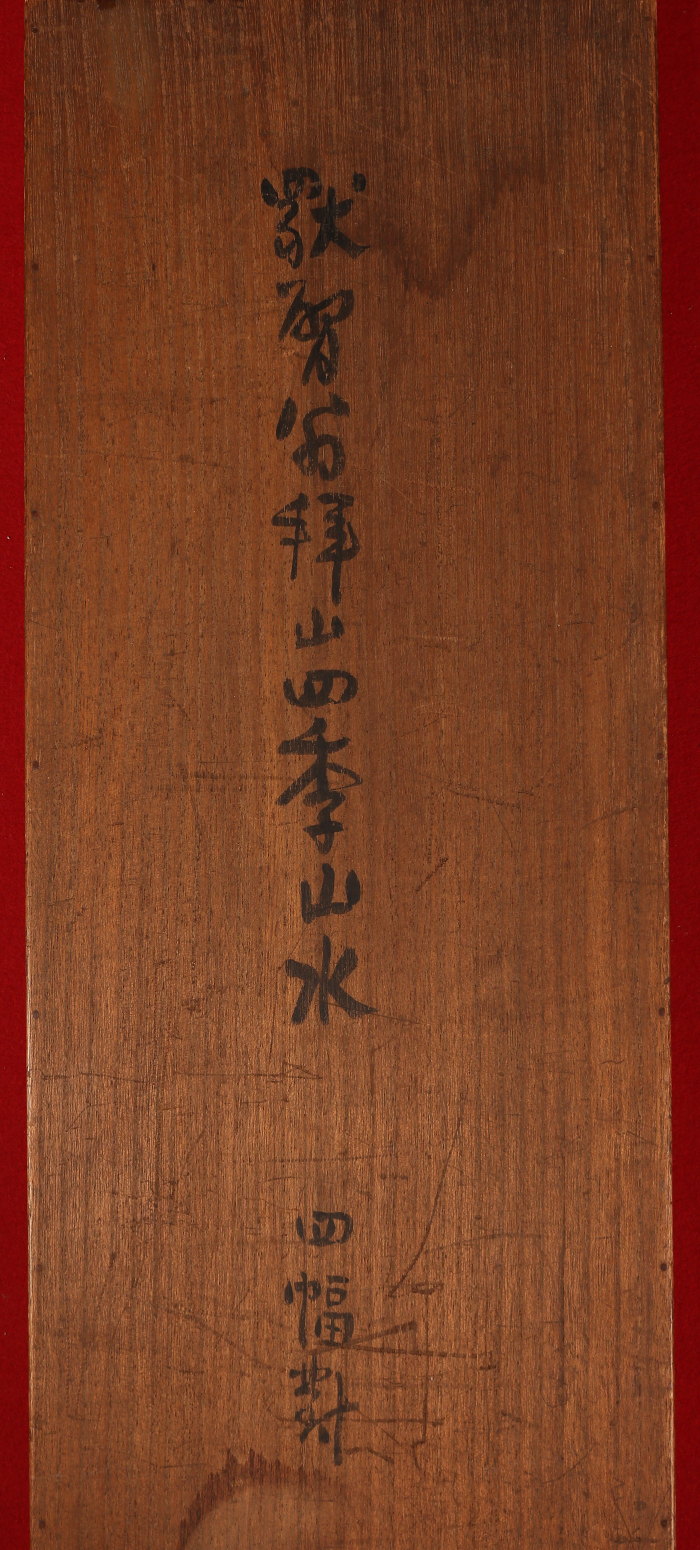 獨臂翁拜山四季山水
四幅對